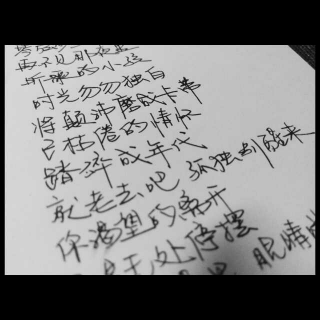 再不见那夜里
听歌的小孩
时光匆匆独白
将颠沛磨成卡带
已枯倦的情怀
踏碎成年代
就老去吧 孤独别醒来
你渴望的离开
无处停摆
眼睛